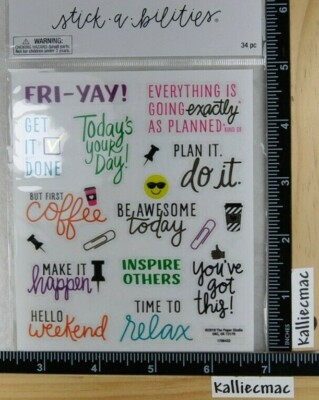 stick·a·bilities®
WARNING:
CHOKING HAZARD-Small parts.
Not for children under 3 yrs.
34 pc
FRI-YAY!
EVERYTHING IS
GOING exactly
AS PLANNED. KIND OF
GET
IT
DONE
Today's
your
Day!
PLAN IT.
do it.
BUT FIRST
coffee
BE AWESOME
today
MAKE IT
happen
INSPIRE
OTHERS
you've
got
this!
HELLO
weekend
TIME TO
relax
1
2
3
4
5
6
INCHES
3
4
5
6
7
Kalliecmac
Kalliecmac